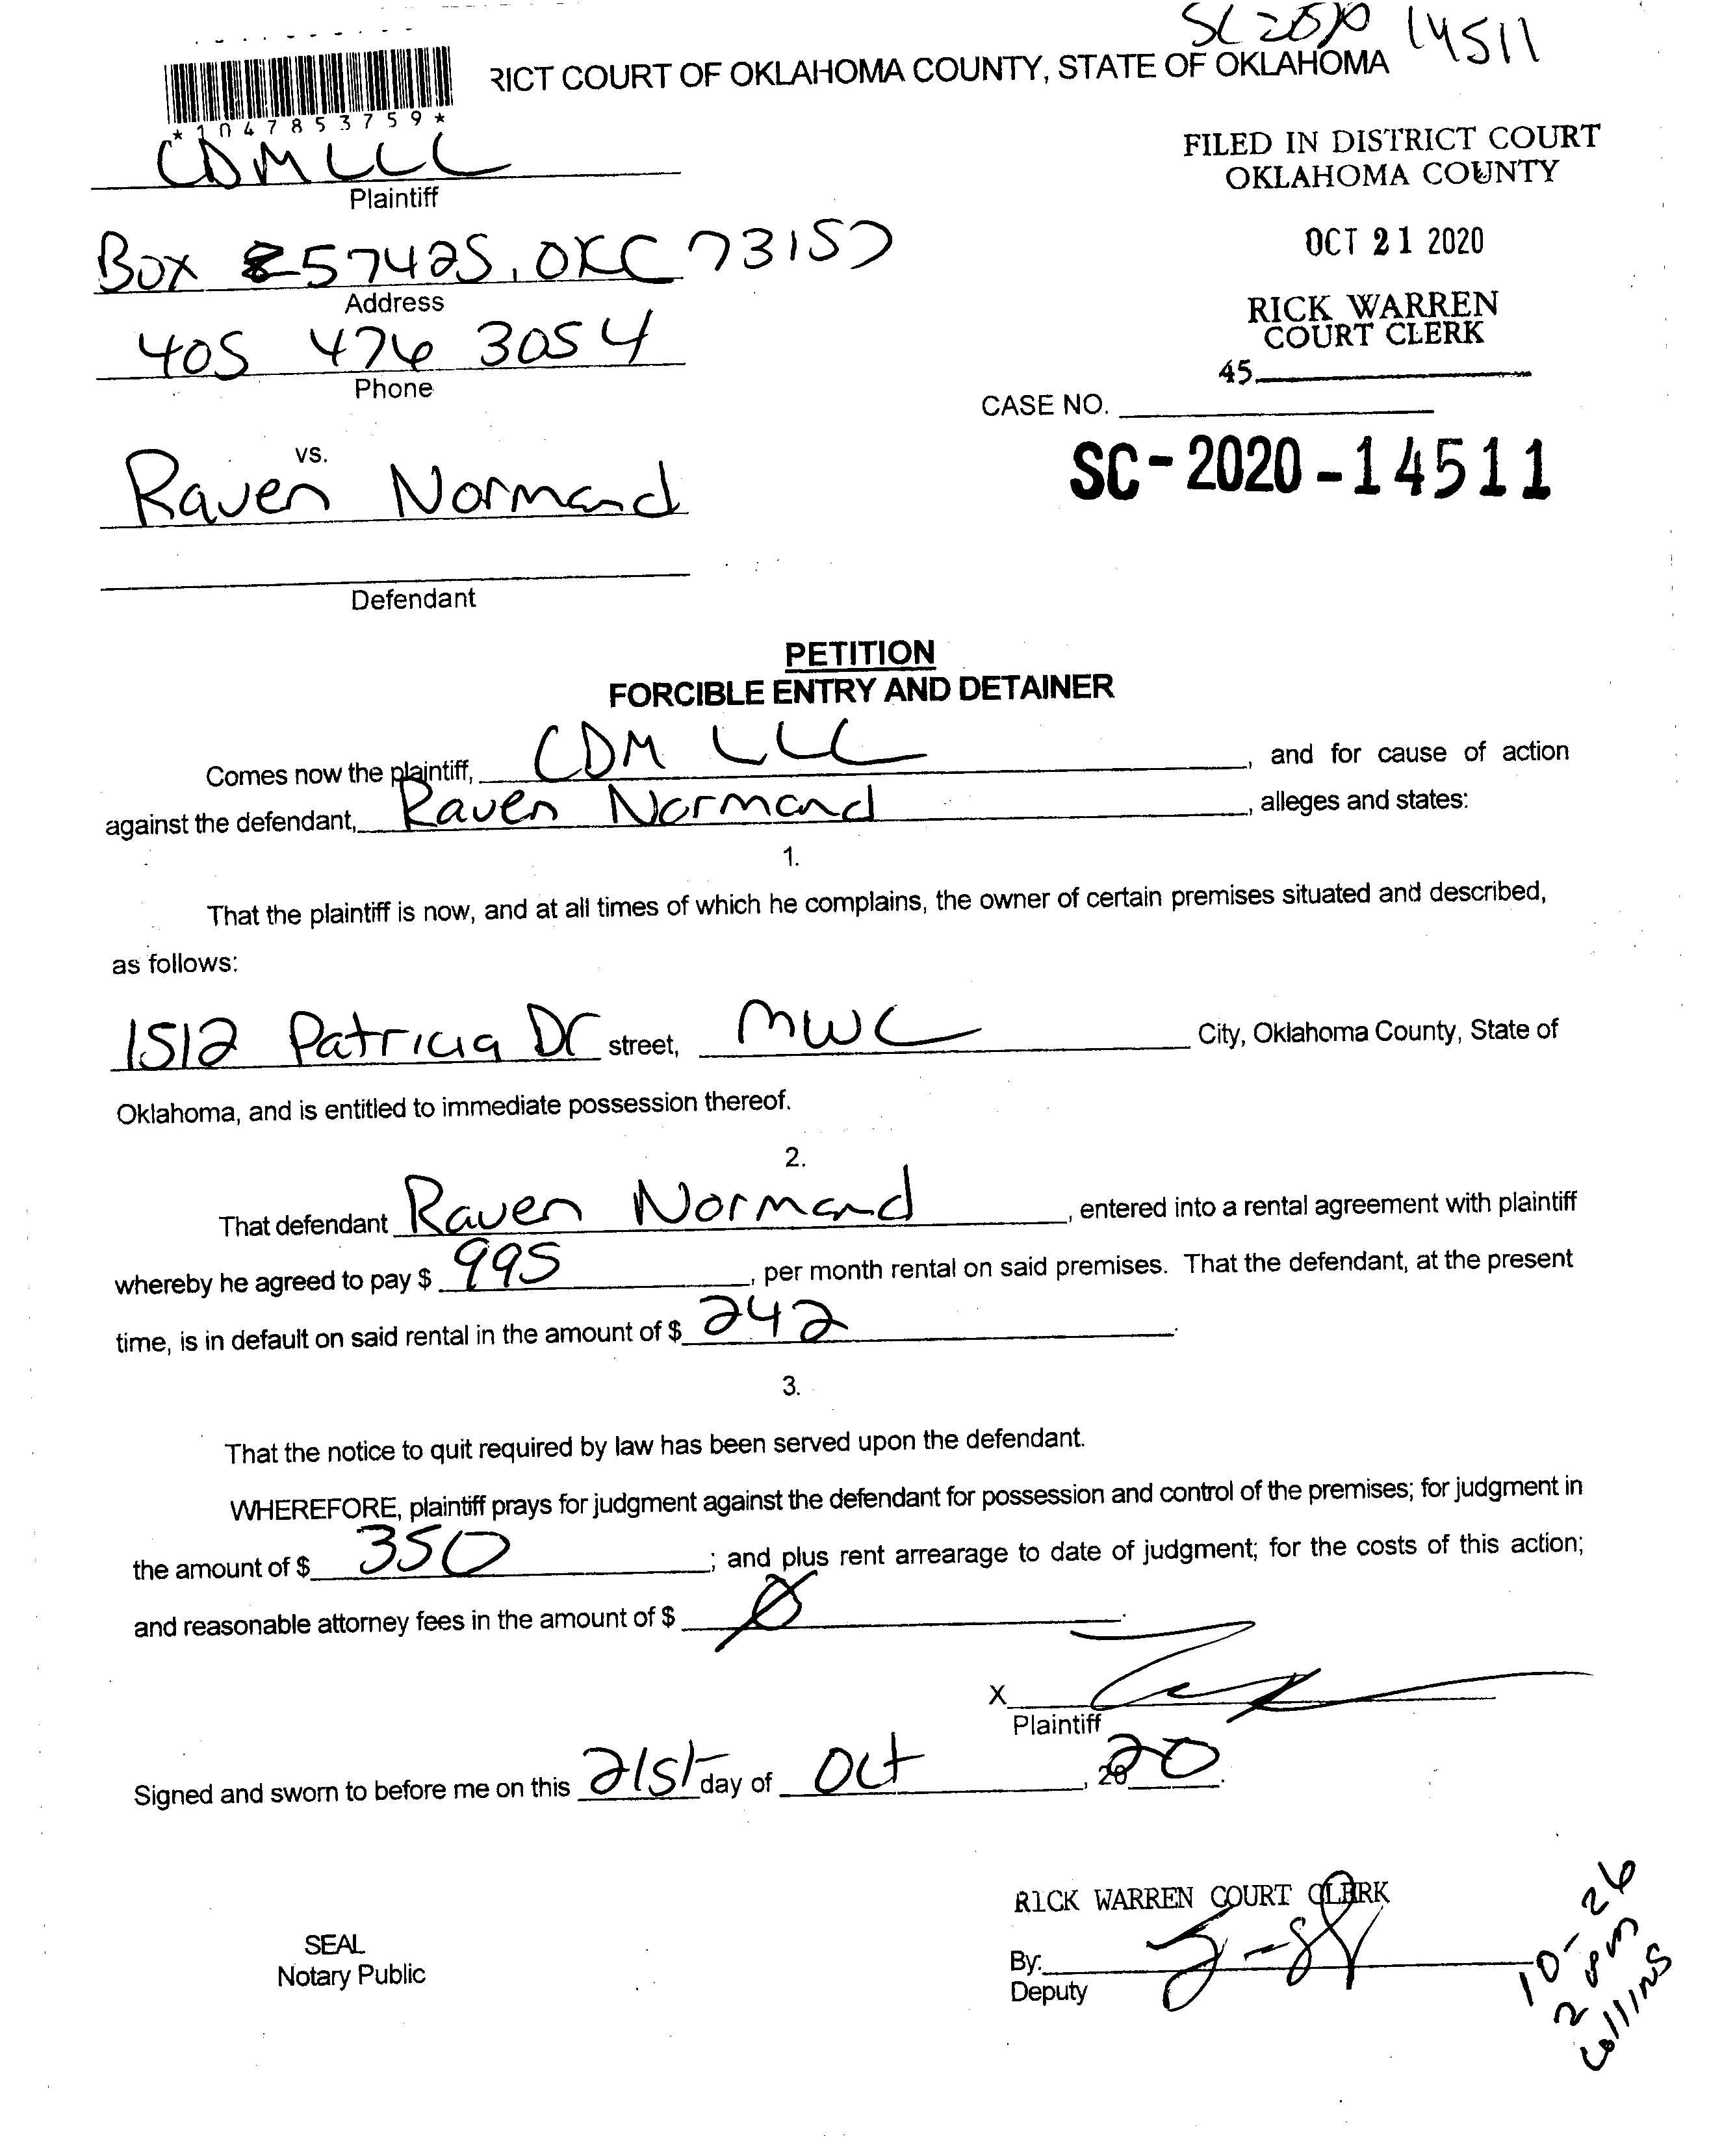 SC 2020 14511
RICT COURT OF OKLAHOMA COUNTY, STATE OF OKLAHOMA
*1047853759*
FILED IN DISTRICT COURT
OKLAHOMA COUNTY
CDM LLC
Plaintiff
OCT 21 2020
Box 57425, OKC 73157
Address
RICK WARREN
COURT CLERK
405 476 3054
Phone
45
CASE NO.
SC-2020-14511
vs.
Raven Normand
Defendant
PETITION
FORCIBLE ENTRY AND DETAINER
Comes now the plaintiff, CDM LLC, and for cause of action
against the defendant, Raven Normand, alleges and states:
1.
That the plaintiff is now, and at all times of which he complains, the owner of certain premises situated and described,
as follows:
1512 Patricia Dr street, MWC City, Oklahoma County, State of
Oklahoma, and is entitled to immediate possession thereof.
2.
That defendant Raven Normand, entered into a rental agreement with plaintiff
whereby he agreed to pay $ 995, per month rental on said premises. That the defendant, at the present
time, is in default on said rental in the amount of $ 242.
3.
That the notice to quit required by law has been served upon the defendant.
WHEREFORE, plaintiff prays for judgment against the defendant for possession and control of the premises; for judgment in
the amount of $ 350; and plus rent arrearage to date of judgment; for the costs of this action;
and reasonable attorney fees in the amount of $ Ø.
X
Plaintiff
Signed and sworn to before me on this 21st day of Oct, 2020.
RICK WARREN COURT CLERK
SEAL
Notary Public
By:
Deputy
10-26
2 pm
Collins